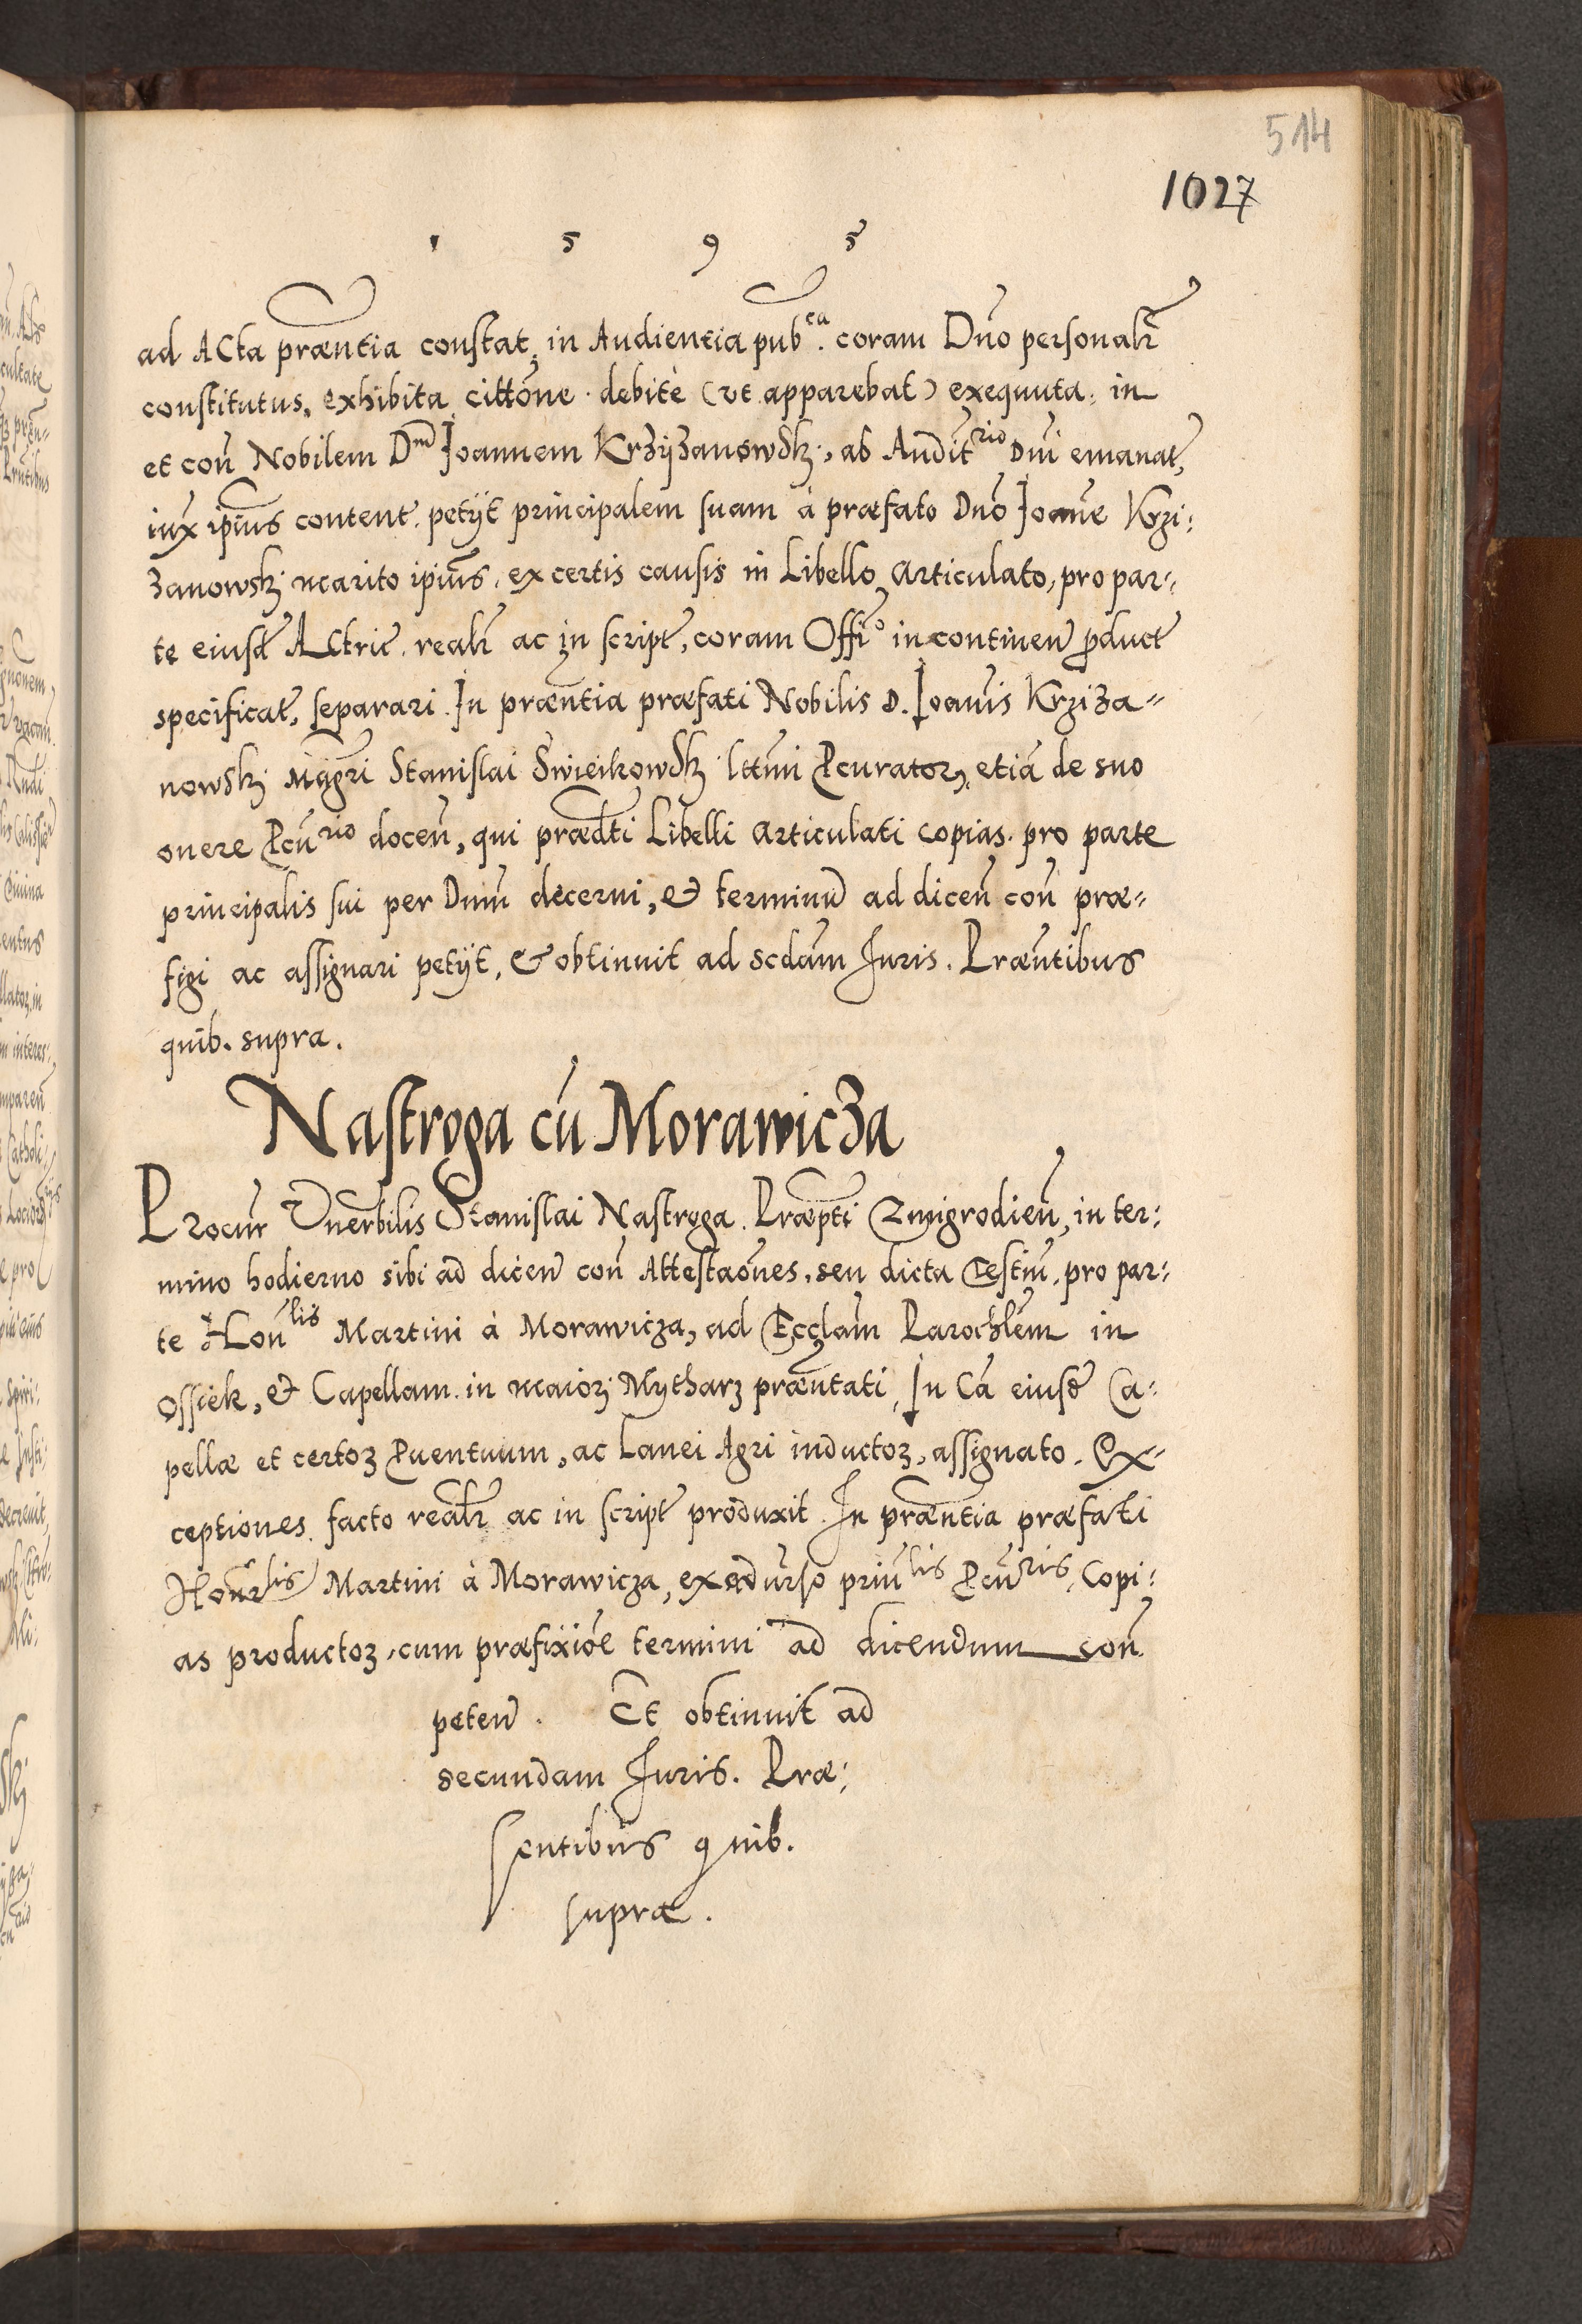 514
1027
1 5 9 5
ad Acta præntia constat, in Audientia pub^ca. coram Dno personalr
constitutus, exhibita cittone debitè (vt apparebat) exequuta, in
et con Nobilem D^nũ Joannem Krzyzanowsk:, ab Audit^rio Dni emanat,
iux ipius content. petijt principalem suam à præfato Dno Joane Krzi:
zanowskj marito ipius, ex certis causis in Libello Articulato, pro par:
te eiusd Actric. realr ac in script, coram Offi^o in continen product
specificat, separari. In præntia præfati Nobilis D. Joanis Krziza=
nowskj Mgri Stanislai Swieikowsk lttmi Pcurator, etiā de suo
onere Pcu^rio docen, qui prædti Libelli articulati copias pro parte
principalis sui per Dnm decerni, & terminū ad dicen con præ=
figi ac assignari petijt, & obtinuit ad scdam Juris. Præntibus
quib. supra.
Nastroga cū Morawicza
Procur Vnerbilis Stanislai Nastroga. Præpti Zmigrodien, in ter:
mino hodierno sibi ad dicen con Attestaones, seu dicta Testiū, pro par:
te Hon^lis Martini à Morawicza, ad Ecclam Parochlem in
Ossiek, & Capellam in maiorj Mytharz præntati, In Cā eiusd Ca:
pellæ et certoꝝ Puentuum, ac Lanei Agri inductoꝝ, assignato. Ex=
ceptiones facto realr ac in script produxit. In præntia præfati
Honor^lis Martini à Morawicza, ex aduerso priu^lis Pcu^ris, Copi:
as productoꝝ, cum præfixioe termini ad dicendum con
peten. Et obtinuit ad
secundam Juris. Præ:
sentibus quib.
supra.